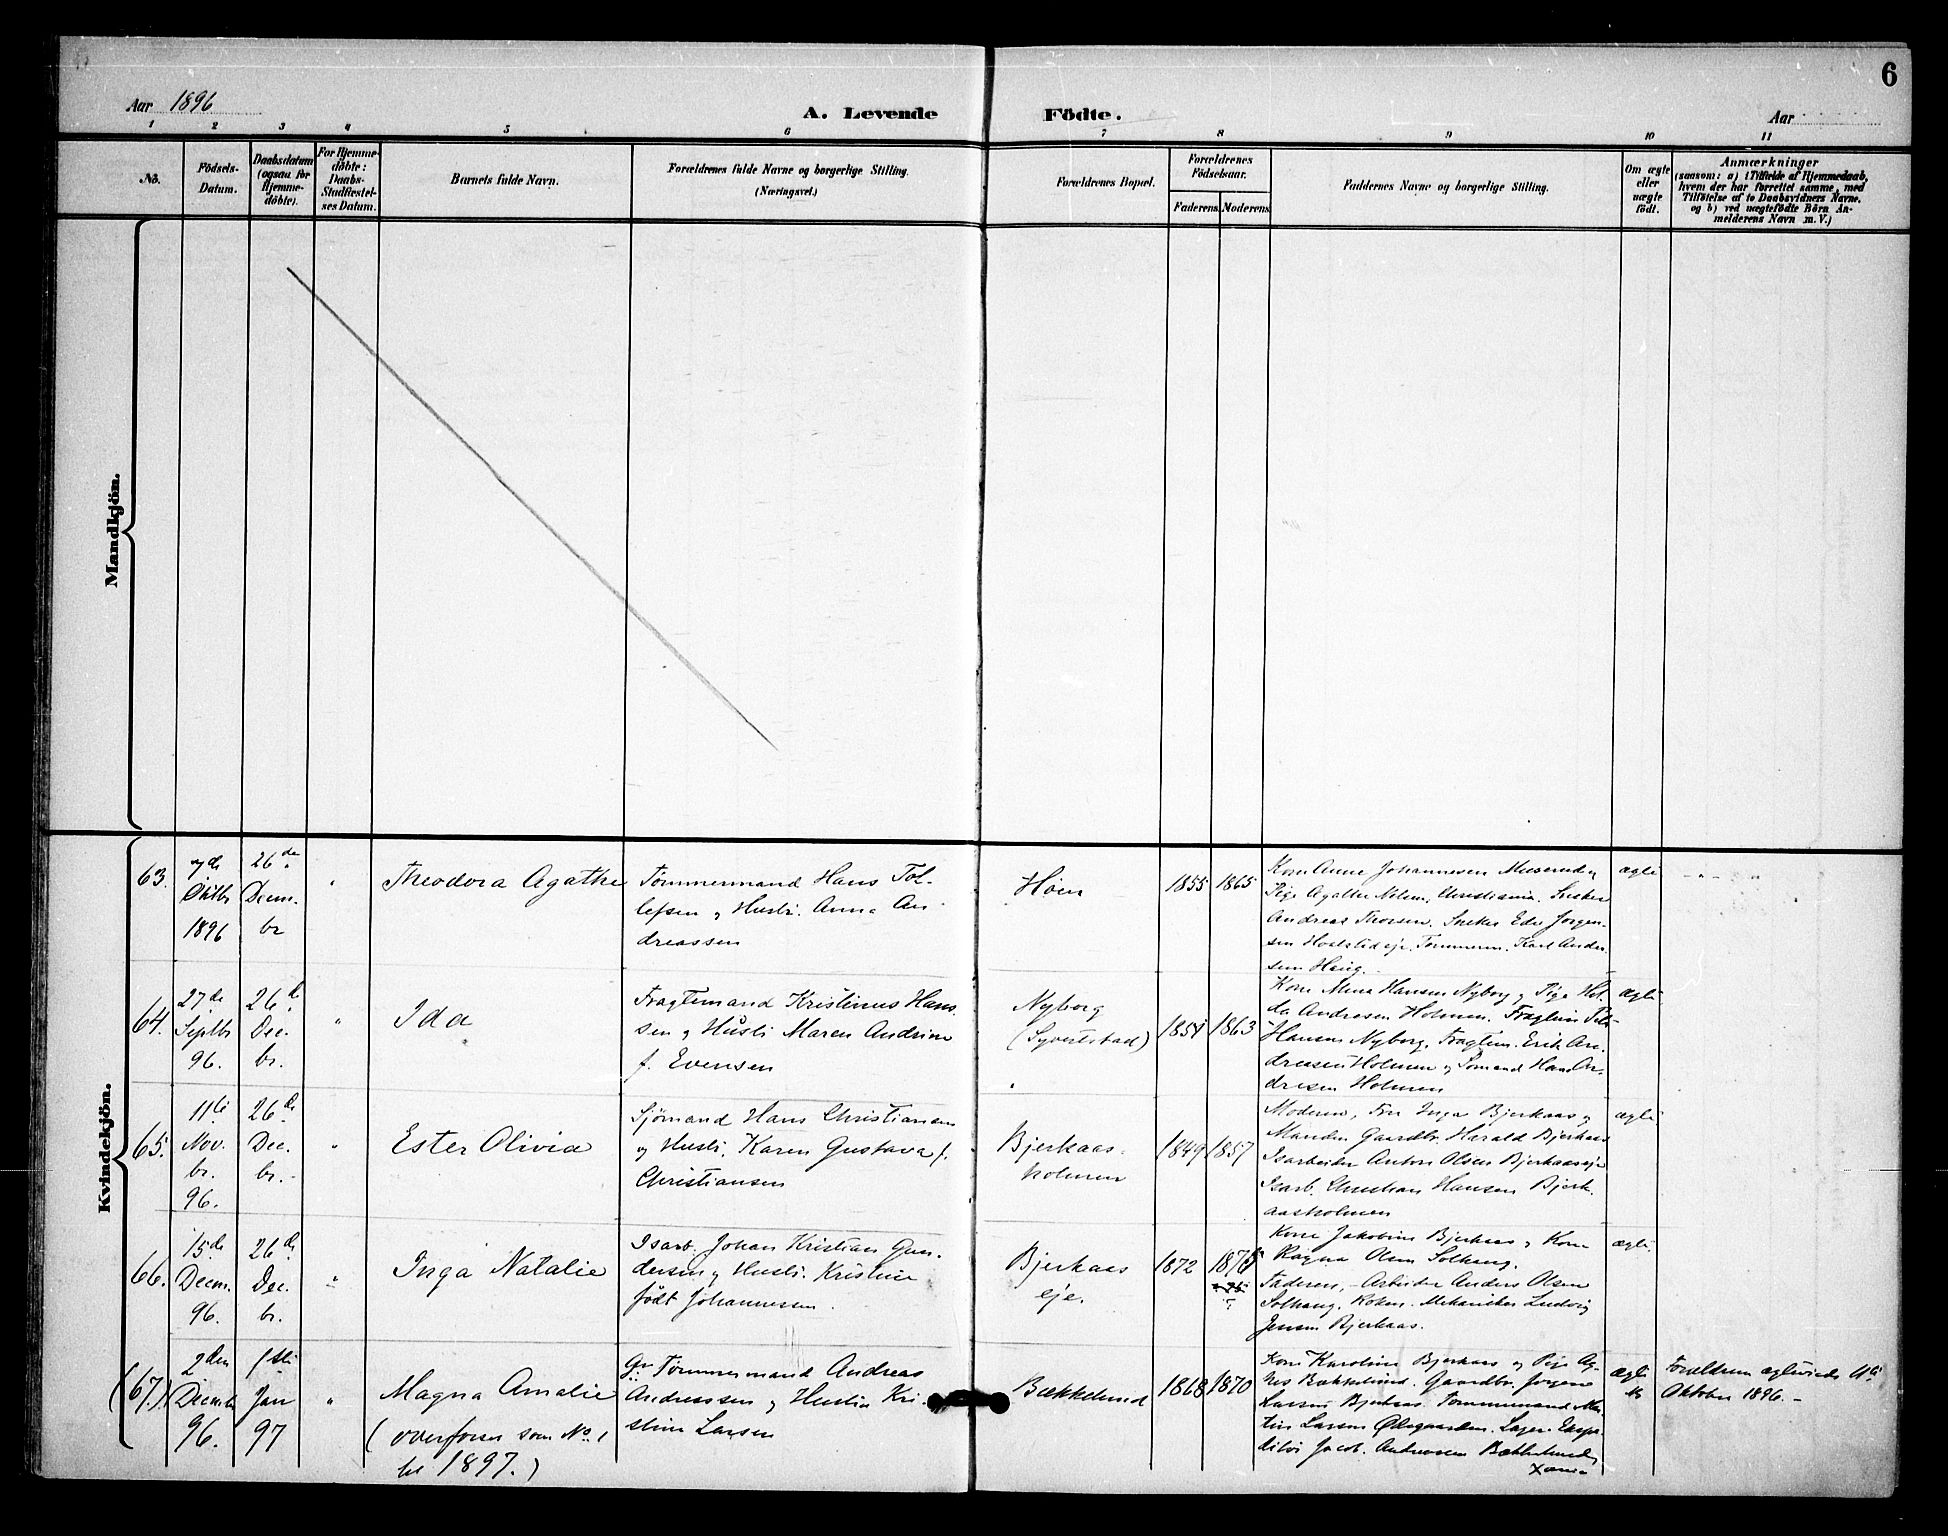 6
Aar 1896
A. Levende Födte.
Aar
1 2 3 4 5 6 7 8 9 10 11
No.
Födsels-
Datum.
Daabsdatum
(ogsaa for
Hjemme-
döbte).
For Hjemme-
döbte:
Daabs-
Stadfæstel-
ses Datum.
Barnets fulde Navn.
Forældrenes fulde Navne og borgerlige Stilling.
(Næringsvei.)
Forældrenes Bopæl.
Forældrenes
Födselsaar.
Faderens.
Moderens.
Faddernes Navne og borgerlige Stilling.
Om ægte
eller
uægte
födt.
Anmærkninger
(saasom: a) i Tilfælde af Hjemmedaab,
hvem der har forrettet samme, med
Tilföielse af to Daabsvidners Navne,
og b) ved uægtefödte Börn An-
melderens Navn m. V.)
Mandkjön.
Kvindekjön.
63.
7de
Oktbr
1896
26de
Decm.
br
"
Theodora Agathe
Tømmermand Hans Tol-
lefsen og Hustr. Anna An-
dreassen
Høen
1855
1865
Kone Anne Johannesen
Pige Agathe Nilsen, Christiania. Snekker
Andreas Thorsen. Snekker Edv. Jørgen-
sen Tømmerm. Karl Ander-
sen Haug.
ægte
" " "
64.
27de
Septbr
96.
26de
Dec.
br.
"
Ida
Fragtemand Kristinus Han-
sen og Hustr. Maren Andrine
f. Evensen
Nyborg
(Syverstad)
1851
1863
Kone Mina Hansen Nyborg og Pige Hel-
da Andresen Holmen.
Hansen Nyborg. Fragtem. Erik An-
dreasen Holmen og Sømand Hans An-
dresen Holmen
ægte
65.
11te
Nov.
br.
96.
26de
Dec.
br.
"
Ester Olivia
Sjømand Hans Christiansen
og Hustr. Karen Gustava f.
Christiansen
Bjerkaas-
holmen
1849
1857
Moderen, Fru Inga Bjerkaas og
Manden Gaardbr. Harald Bjerkaas
Isarbeider Anton Olsen Bjerkaaseje
Isarb. Christian Hansen Bjerk-
aasholmen
ægte
66.
15de
Decm.
96.
26de
Dec.
br.
"
Inga Natalie
Isarb. Johan Kristian Gun-
dersen og Hustr. Kristine
født Johannessen.
Bjerkaas
eje.
1872
Kone Jakobine Bjerkaas og Kone
Ragna Olsen Solhaug.
Faderen, - Arbeider Anders Olsen
Solhaug. Mekaniker Ludvig
Jensen Bjerkaas.
ægte
(67.)
2den
Decmbr
96.
1ste
Jan
97
"
Magna Amalie
(overføres som No 1
til 1897.)
Tømmermand Andreas
Andreassen og Hustru Kri-
stine Larsen
Bækkelund
1868
1870
Kone Karoline Bjerkaas og Pige Ag-
nes Bækkelund. Gaardbr. Jørgen
Larsen Bjerkaas. Tømmermand Mar-
tin Larsen Ødegaarden.
Jacob Andreassen Bækkelund,
Xania
ægte
Forældrene ægteviede
Oktober 1896. -